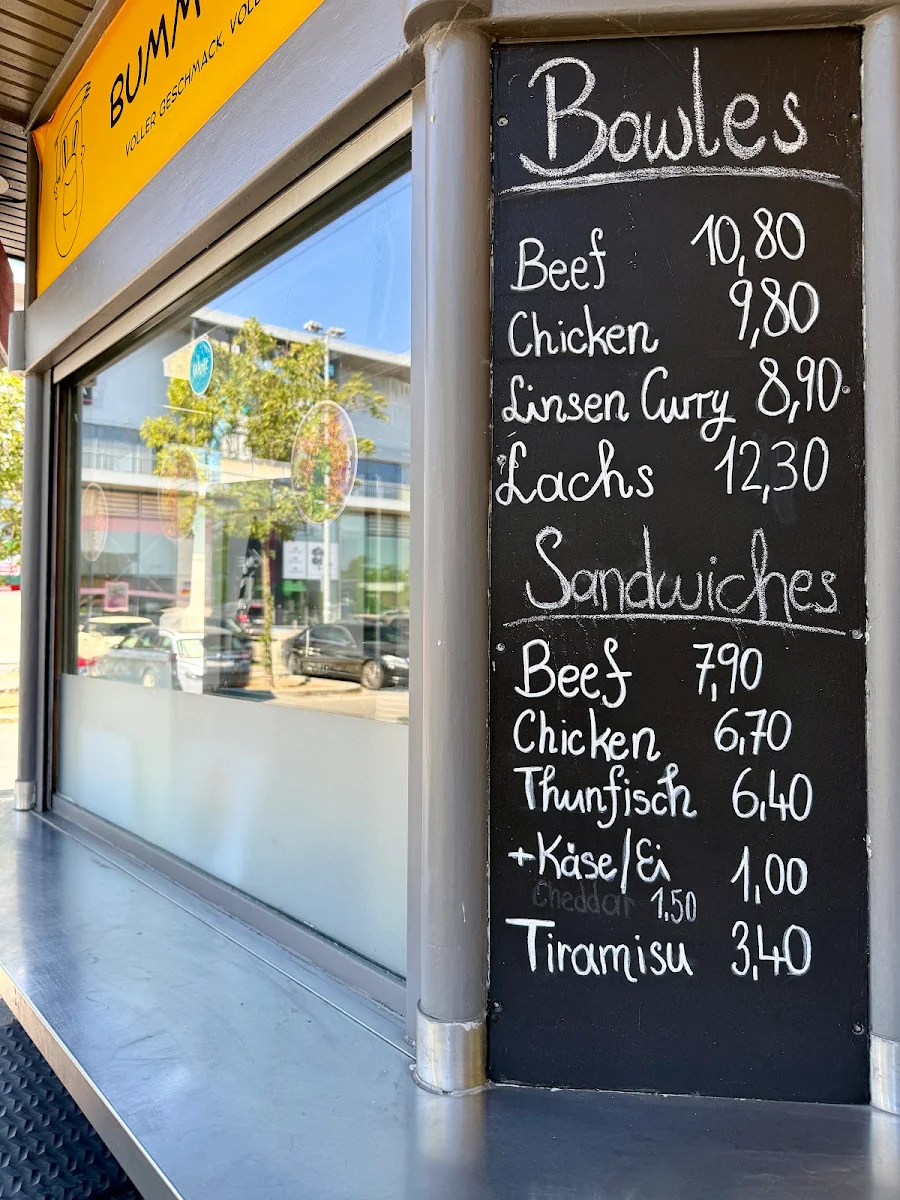 VOLLER GESCHMACK,
Bowles
Beef 10,80
Chicken 9,80
Linsen Curry 8,90
Lachs 12,30
Sandwiches
Beef 7,90
Chicken 6,70
Thunfisch 6,40
+Käse/Ei 1,00
Cheddar 1,50
Tiramisu 3,40